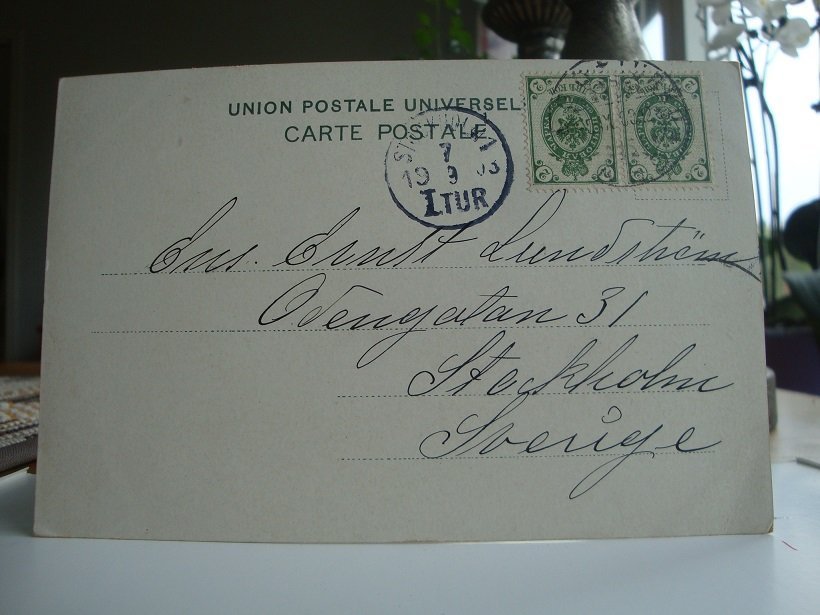 UNION POSTALE UNIVERSEL
CARTE POSTALE
7
19 9 03
I TUR
Ernst Lundström
Odengatan 31
Stockholm
Sverige